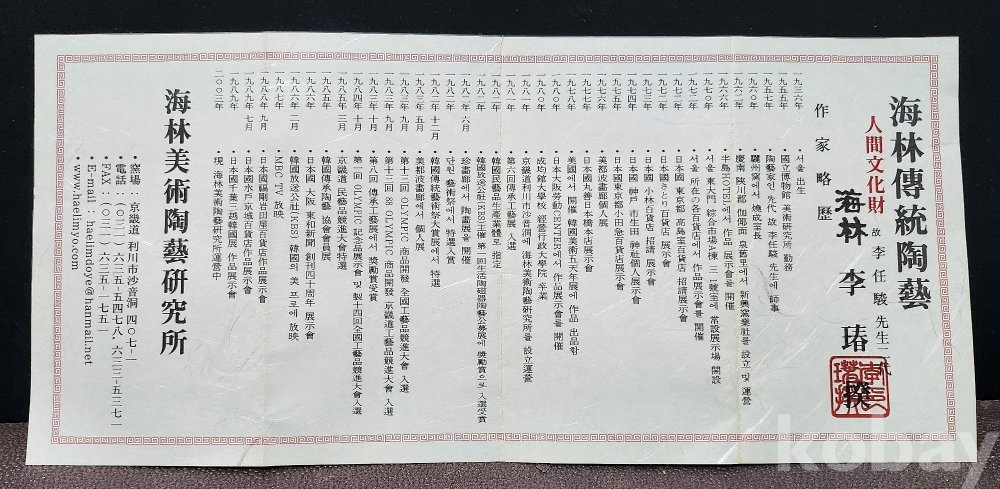 海林傳統陶藝
人間文化財 故 李任駿 先生二代
海林 李 瑃 揆
作家略歷
一九三六年 • 서울 出生
一九五五年 • 國立博物館 美術研究所 勤務
一九五七年 • 陶藝家인 先代 故 李任駿 先生에 師事
慶南 陜川郡 伽倻面 泉舊里에서 新興窯業社를 設立 및 運營
一九六六年 • 半島HOTEL에서 作品 展示會를 開催
一九七〇年 • 서울 東大門 綜合市場 n棟 三號室에 常設展示場 開設
一九七二年 • 서울 所在의 各百貨店에서 作品展示會를 開催
日本國 東京都 高島室百貨店 招請展示會
日本國 小林百貨店 招請 展示會
一九七四年 • 日本國 神戶市 生田 神社個人展示會
一九七五年 • 日本國東京都小田急百貨店展示會
一九七六年 • 美都波畫廊個人展
一九七七年 • 日本國丸善日本橋本店展示會
一九七八年 • 美國에서 開催 韓國美術五天年展에 作品 出品함
• 日本大阪勞動CENTER에서 作品展示會를 開催
一九八〇年 • 成均館大學校 經營行政大學院 卒業
一九八一年 • 京畿道利川市沙音洞에 海林美術陶藝研究所를 設立運營
一九八一年 • 第六回 傳承工藝展 入選
一九八二年 • 韓國民藝品生産業體로 指定
一九八二年 • 韓國放送公社(KBS)主催 第一回生活陶磁器陶藝公募展에 獎勵賞으로 入選受賞
一九八二年 六月 • 珍畫廊에서 陶畫展을 開催
• 단원 藝術祭에서 特選入賞
一九八二年 十二月 • 韓國傳統藝術祭大賞展에서 特選
一九八三年 五月 • 美都波畫廊에서 個人展
一九八三年 九月 • 第十三回 OLYMPIC 商品開發 全國工藝品競進大會 入選
一九八三年 十月 • 第十三回 88 OLYMPIC 商品開發 京畿道工藝品競進大會 入選
一九八三年 十月 • 第八回 傳承工藝展에서 獎勵賞受賞
一九八四年 十月 • 第一回 OLYMPIC 記念品展示會 및 製十四回全國工藝品競進大會入選
一九八五年 三月 • 京畿道 民藝品競進大會特選
一九八五年 十月 • 韓國傳承陶藝 協會會員展
一九八六年 • 日本國 大阪 東和新聞 創刊四十周年 展示會
一九八六年 二月 • 韓國放送公社(KBS)韓國의 美 프로에 放映
一九八七年 • MBC TV 放映
一九八八年 九月 • 日本國福岡岩田屋百貨店作品展示會
一九八九年 七月 • 日本國水戶京城百貨店作品展示會
一九八九年 • 日本國千葉三越韓國展 作品展示會
二〇〇三年 • 現 海林美術陶藝研究所運營中
海林美術陶藝研究所
• 窯場：京畿道 利川市沙音洞 四〇七-一
• 電話：(〇三一)六三五-五四七八,六三二-五三七一
• FAX：(〇三一)六三五-一七五一
• E-mail : haelimdoye@hanmail.net
• www.haelimyo.com
kobay